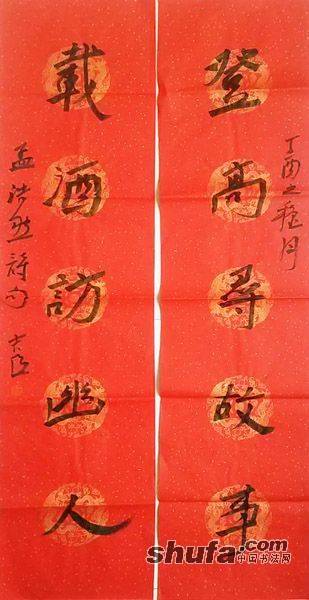 丁酉之
登高尋故事
載酒訪幽人
孟浩然詩句
shufa.com
中国书法网